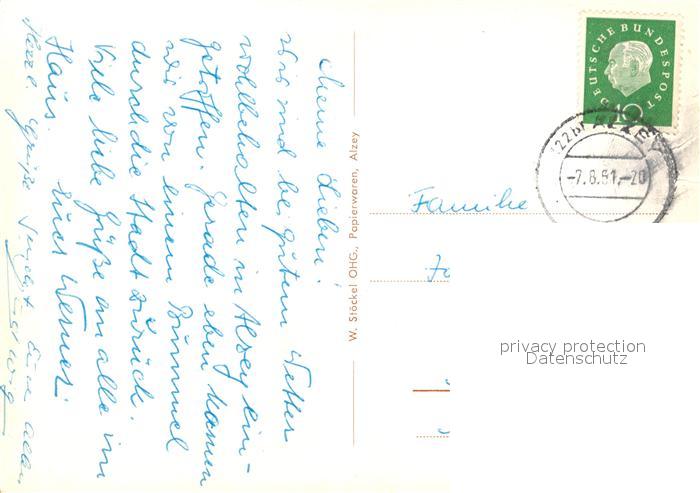 Meine Lieben!
Wir sind bei gutem Wetter
wohlbehalten in Alzey ein-
getroffen. Gerade eben kamen
wir von einem Bummel
durch die Stadt zurück.
Viele liebe Grüße an alle im
Haus.
Euer Werner.
Herzl. Grüße sendet Euch allen
W. Stöckel OHG., Papierwaren, Alzey
DEUTSCHE BUNDESPOST
10
(22b) ALZEY
-7.8.61.-20
Familie
Jo
privacy protection
Datenschutz